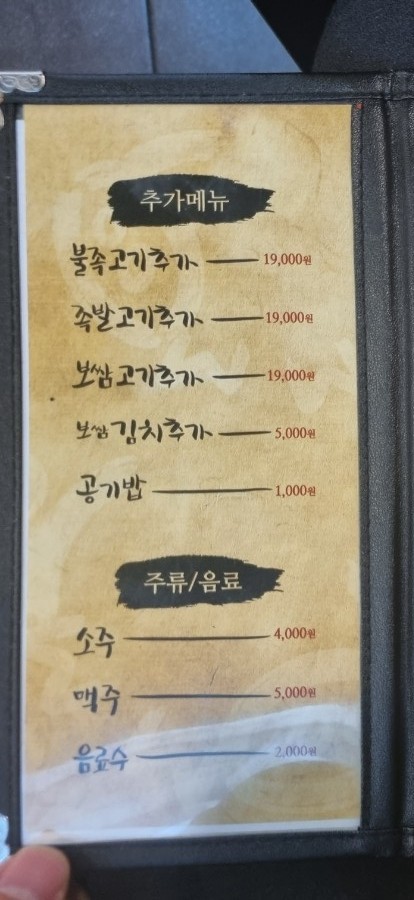 추가메뉴
불족고기추가 19,000원
족발고기추가 19,000원
보쌈고기추가 19,000원
보쌈김치추가 5,000원
공기밥 1,000원
주류/음료
소주 4,000원
맥주 5,000원
음료수 2,000원